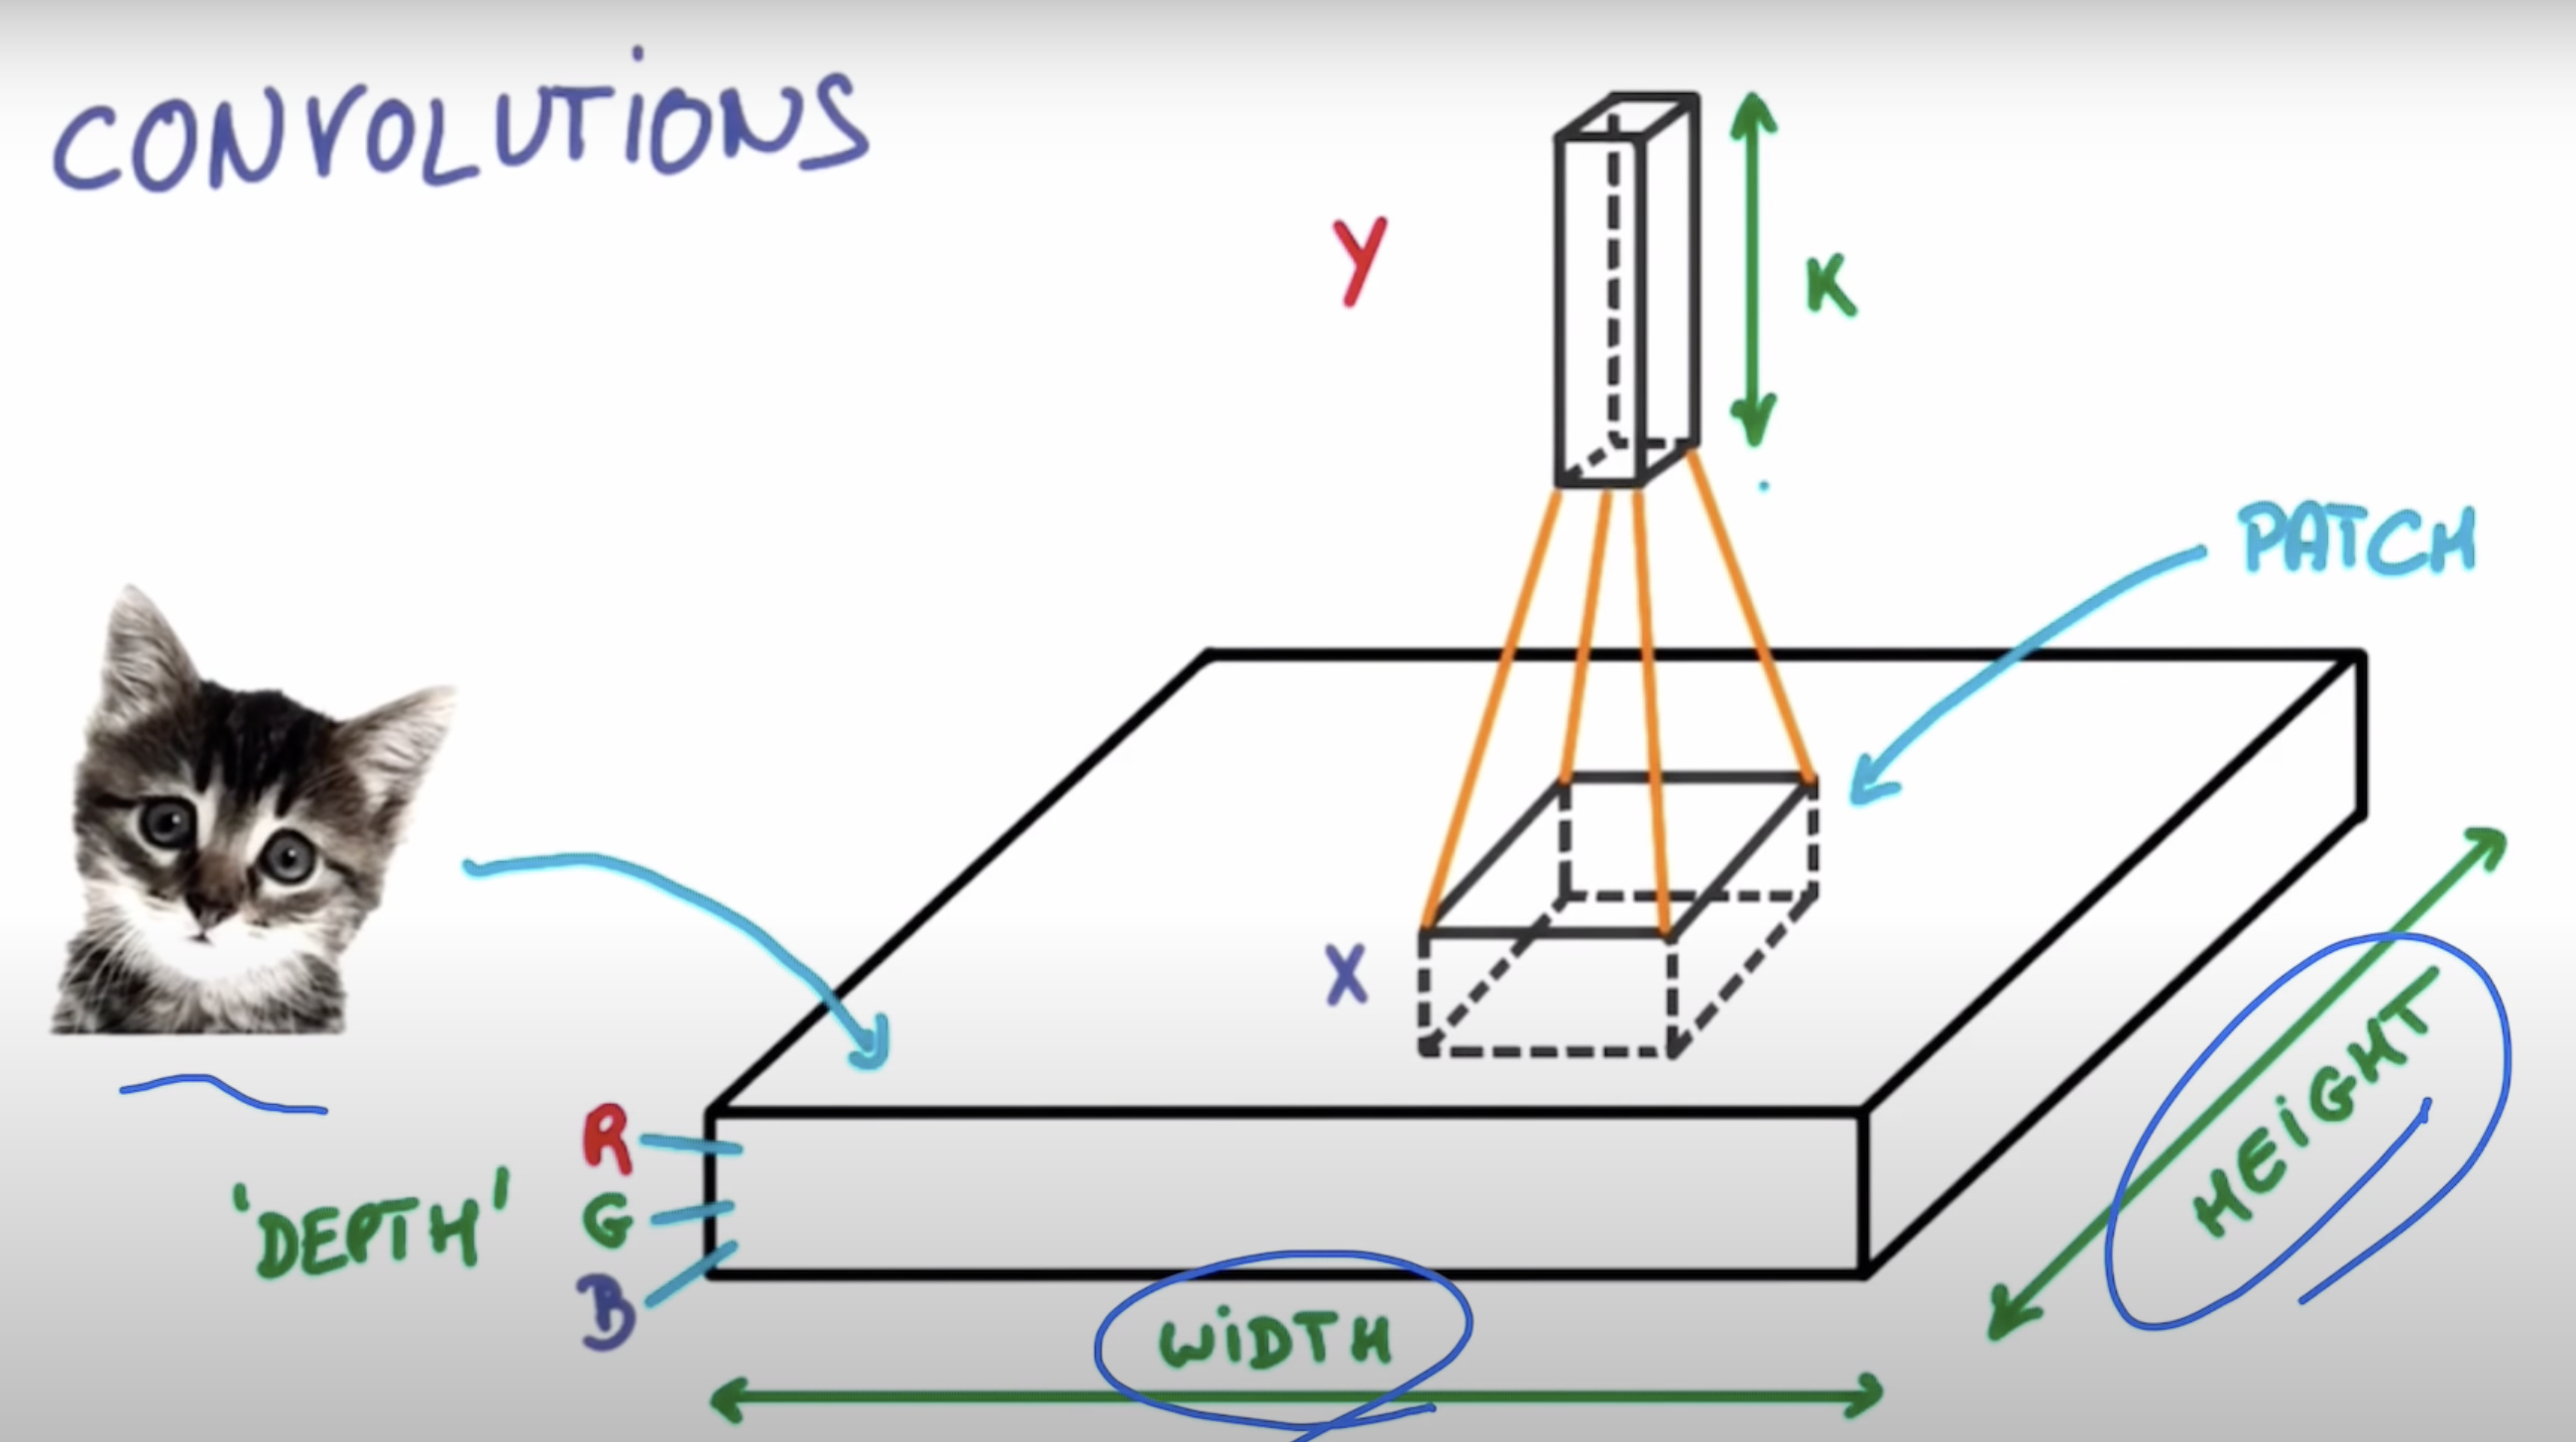 CONVOLUTIONS
Y
K
PATCH
X
R
G
B
'DEPTH'
WIDTH
HEIGHT